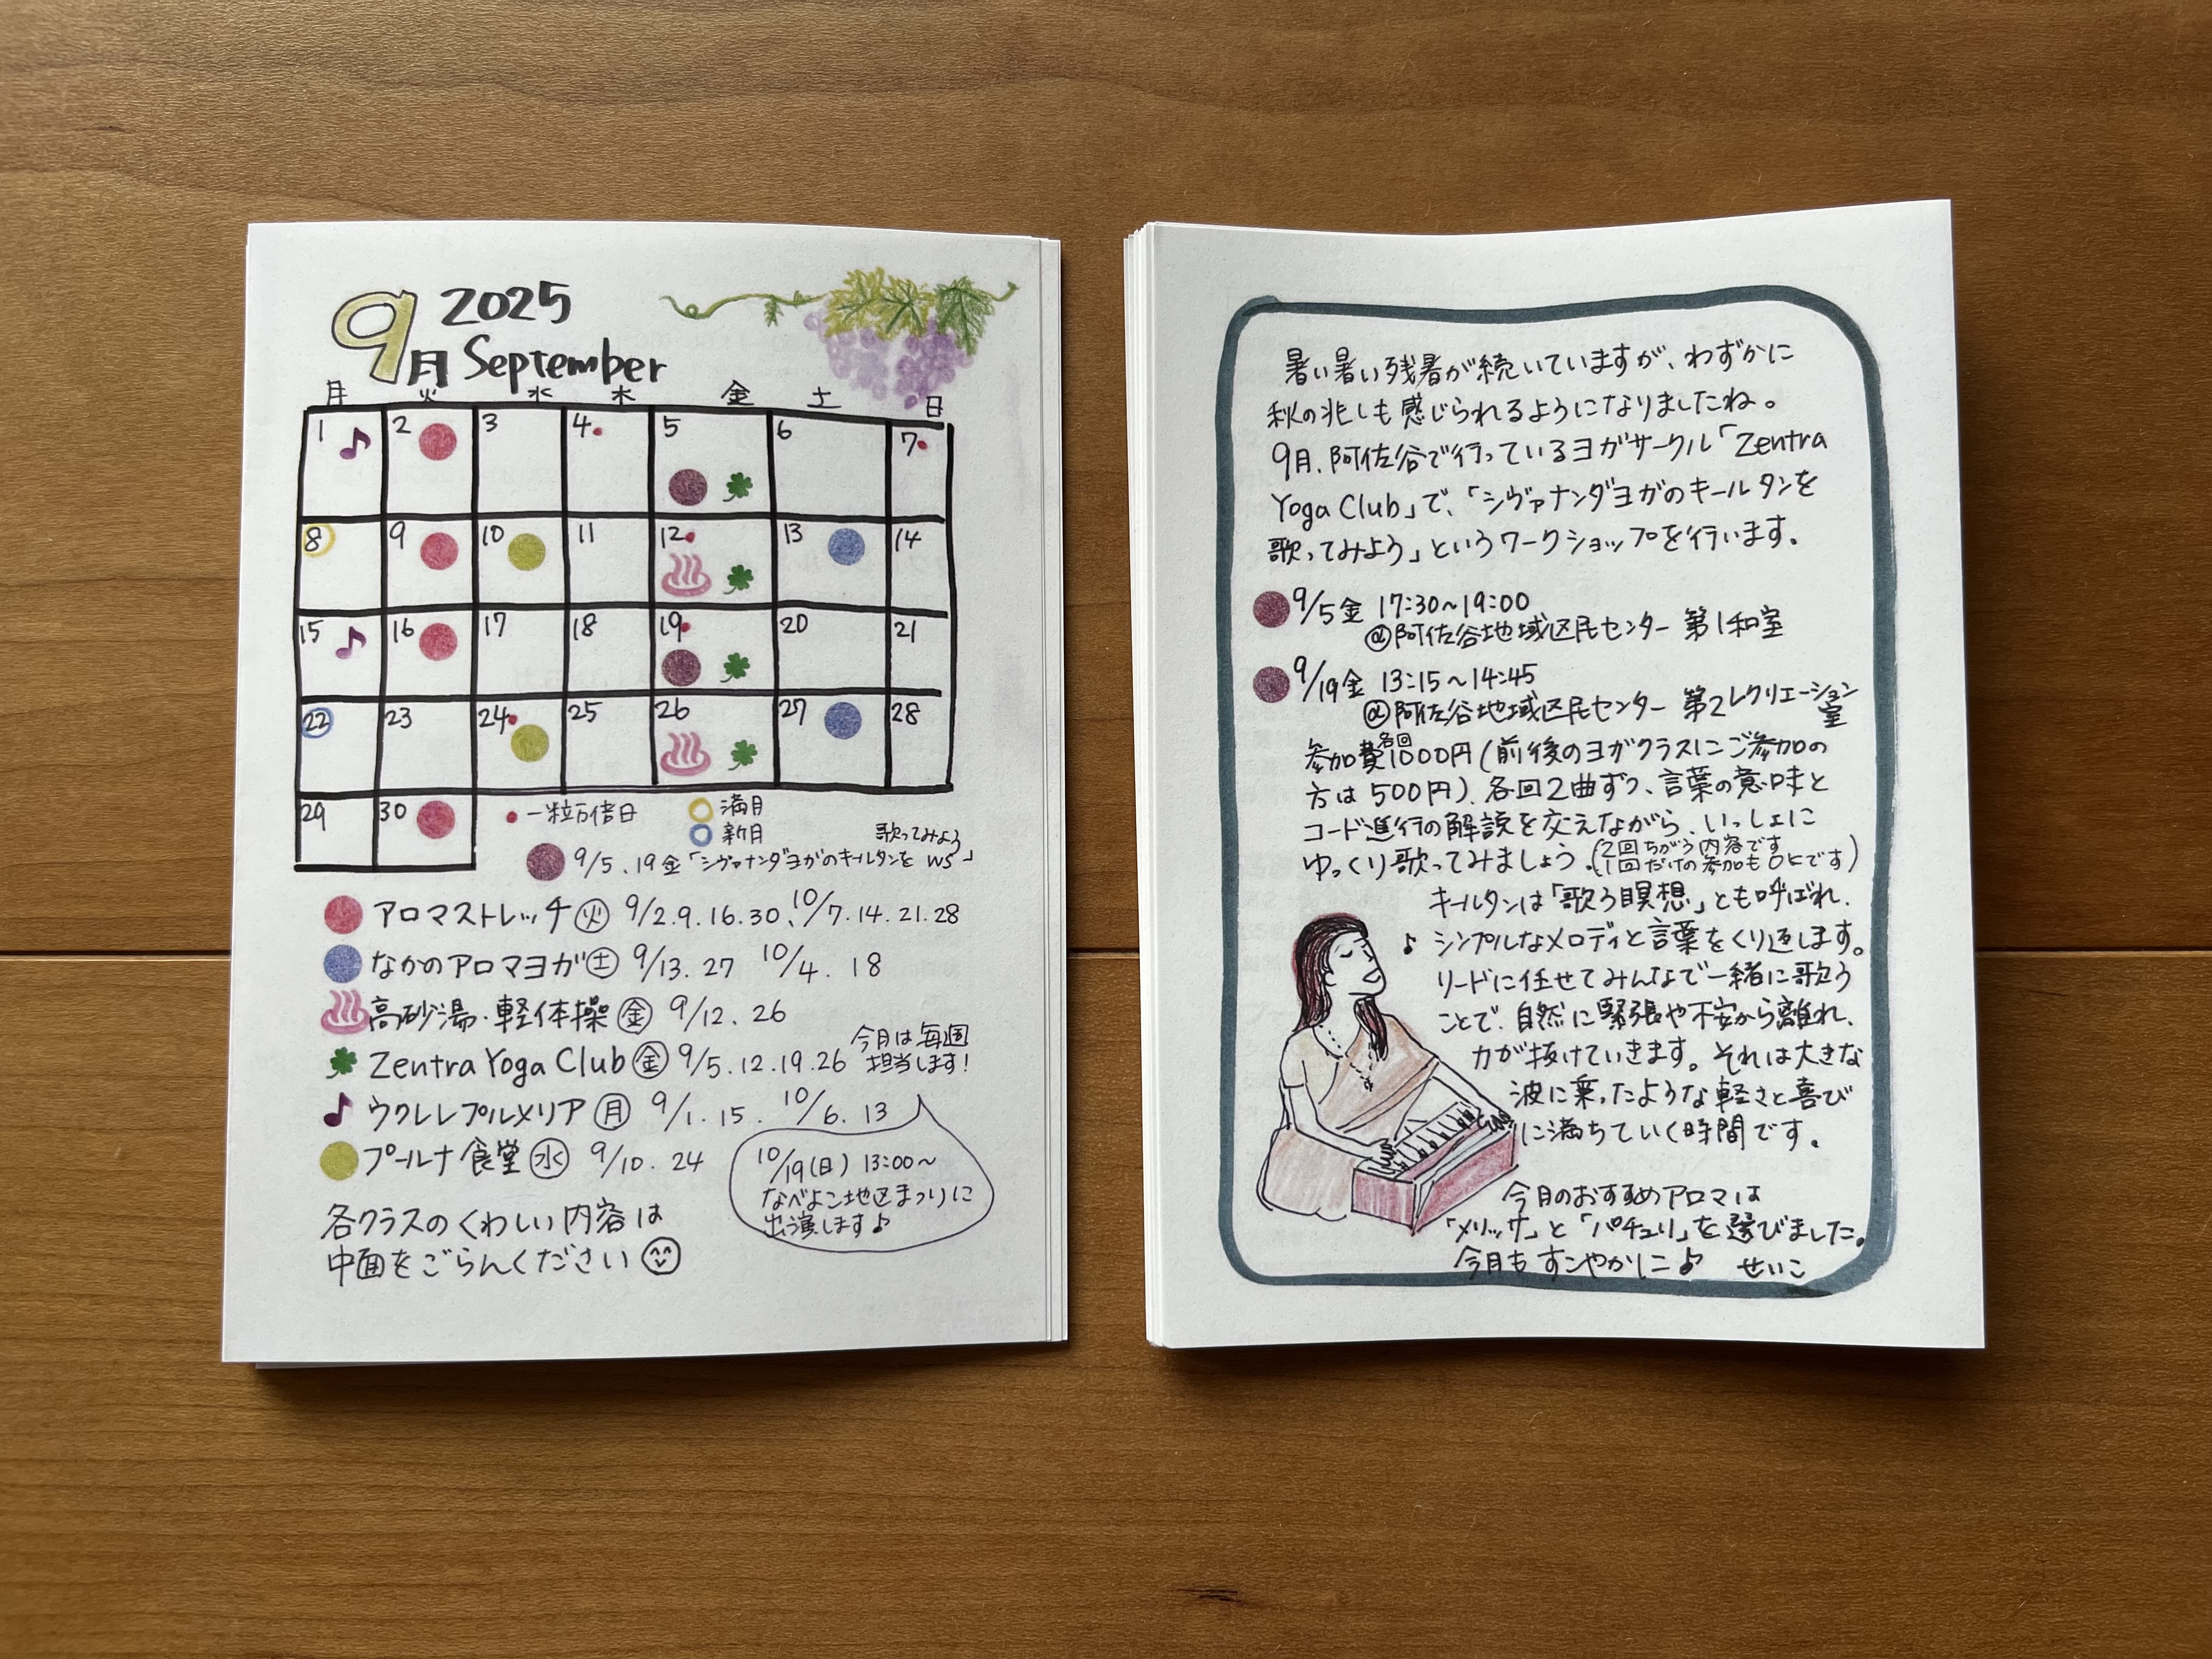 9月 2025
September
月 火 水 木 金 土 日
1 2 3 4 5 6 7
8 9 10 11 12 13 14
15 16 17 18 19 20 21
22 23 24 25 26 27 28
29 30
一粒万倍日
満月
新月
9/5.19金「シヴァナンダヨガのキールタンを歌ってみようWS」
アロマストレッチ(火) 9/2.9.16.30、10/7.14.21.28
なかのアロマヨガ(土) 9/13.27 10/4.18
高砂湯・軽体操(金) 9/12.26
Zentra Yoga Club(金) 9/5.12.19.26 今月は毎週担当します!
ウクレレプルメリア(月) 9/1.15. 10/6.13
プールナ食堂(水) 9/10.24
10/19(日) 13:00〜
なべよこ地区まつりに
出演します♪
各クラスのくわしい内容は
中面をごらんください
暑い暑い残暑が続いていますが、わずかに
秋の兆しも感じられるようになりましたね。
9月、阿佐谷で行っているヨガサークル「Zentra
Yoga Club」で、「シヴァナンダヨガのキールタンを
歌ってみよう」というワークショップを行います。
9/5金 17:30〜19:00
@阿佐谷地域区民センター 第1和室
9/19金 13:15〜14:45
@阿佐谷地域区民センター 第2レクリエーション室
参加費各回1000円(前後のヨガクラスにご参加の
方は500円)、各回2曲ずつ、言葉の意味と
コード進行の解説を交えながら、いっしょに
ゆっくり歌ってみましょう。(2回ちがう内容です
1回だけの参加もOKです)
キールタンは「歌う瞑想」とも呼ばれ、
♪シンプルなメロディと言葉をくり返します。
リードに任せてみんなで一緒に歌う
ことで、自然に緊張や不安から離れ、
力が抜けていきます。それは大きな
波に乗ったような軽さと喜び
に満ちていく時間です。
今月のおすすめアロマは
「メリッサ」と「パチュリ」を選びました。
今月もすこやかに♪ せいこ